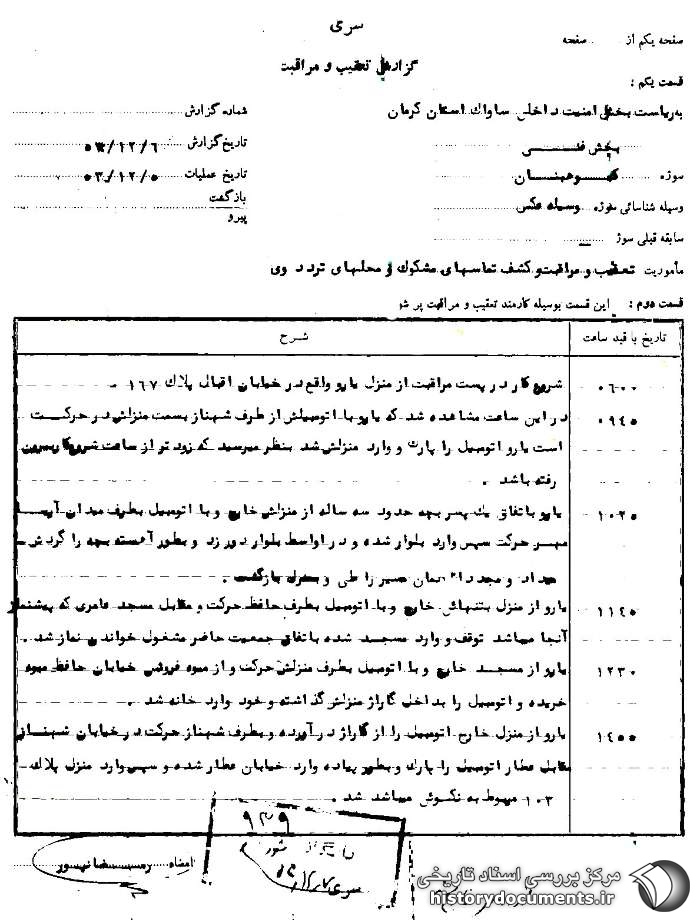 سری
صفحه یکم از صفحه
گزارش تعقیب و مراقبت
قسمت یکم :
به ریاست بخش امنیت داخلی ساواک استان کرمان
شماره گزارش
بخش فنی
تاریخ گزارش ۵۳/۱۲/۶
سوژه کوهبنان
تاریخ عملیات ۵۳/۱۲/۵
وسیله شناسائی سوژه وسیله عکس
بازگشت
پیرو
سابقه قبلی سوژ
مأموریت تعقیب و مراقبت و کشف تماسهای مشکوک و محلهای تردد وی
قسمت دوم : این قسمت بوسیله کارمند تعقیب و مراقبت پر شو
تاریخ با قید ساعت شرح
۰۶۰۰ شروع کار در پست مراقبت از منزل یارو واقع در خیابان اقبال پلاک ۱۶۷ .
۰۹۴۵ در این ساعت مشاهده شد که یارو با اتومبیلش از طرف شهناز بسمت منزلش در حرکت
است یارو اتومبیل را پارک و وارد منزلش شد بنظر میرسید که زودتر از ساعت شروع کار بیرون
رفته باشد .
۱۰۲۵ یارو باتفاق یک پسر بچه حدود سه ساله از منزلش خارج و با اتومبیل بطرف میدان آریا
مهر حرکت سپس وارد بلوار شده و در اواسط بلوار دور زد و بطور آهسته بچه را گردش
میداد و مجددا همان مسیر را طی و بمنزل بازگشت .
۱۱۴۵ یارو از منزل بتنهائی خارج و با اتومبیل بطرف حافظ حرکت و مقابل مسجد عامری که پیشنماز
آنجا میباشد توقف و وارد مسجد شده باتفاق جمعیت حاضر مشغول خواندن نماز شد .
۱۲۳۰ یارو از مسجد خارج و با اتومبیل بطرف منزلش حرکت و از میوه فروشی خیابان حافظ میوه
خریده و اتومبیل را بداخل گاراژ منزلش گذاشته و خود وارد خانه شد .
۱۴۵۵ یارو از منزل خارج اتومبیل را از گاراژ در آورده و بطرف شهناز حرکت در خیابان شهناز
مقابل عطار اتومبیل را پارک و بطور پیاده وارد خیابان عطار شده و سپس وارد منزل پلاک
۱۰۳ مربوط به نکوئی میباشد شد .
۹۳۹
امضاء
مرکز بررسی اسناد تاریخی
historydocuments.ir